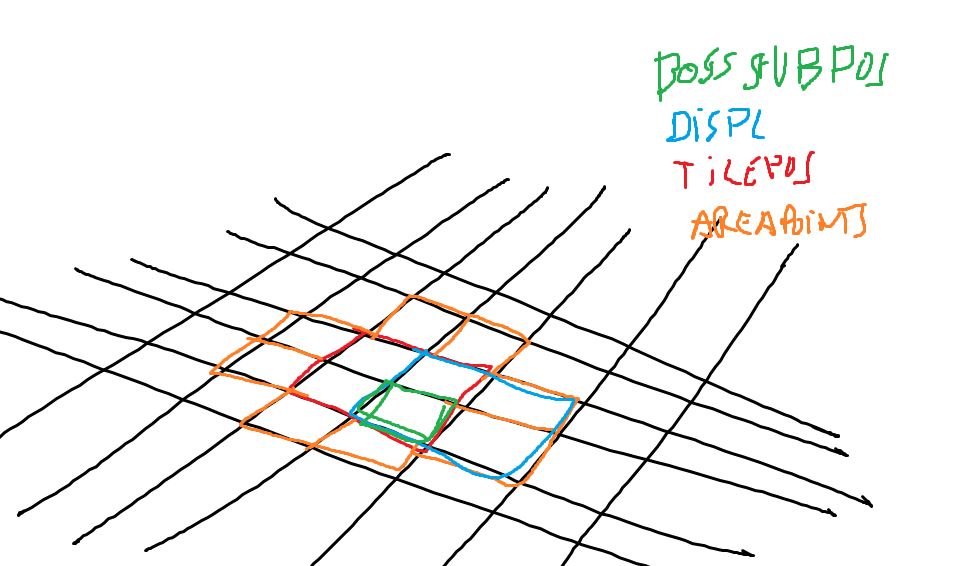 BOSS SUBPOS
DiSPL
TiLEPOS
AREAPOiNTS